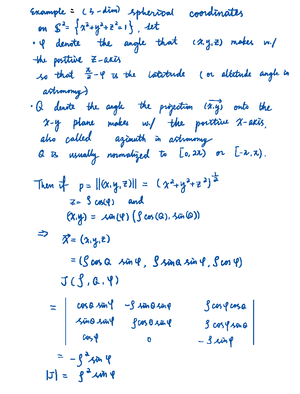 Example : (3-dim) spherical coordinates
on S² = {x²+y²+z²=1}, let
• φ denote the angle that (x,y,z) makes w./
the positive z-axis
so that π/2 - φ is the latitude (or altitude angle in
astronomy)
• θ denote the angle the projection (x,y) onto the
x-y plane makes w/ the positive x-axis.
also called azimuth in astronomy
θ is usually normalized to [0,2π) or [-π,π).
Then if ρ = ||(x,y,z)|| = (x²+y²+z²)^½
z = ρ cos φ and
(x,y) = sin(φ) (ρ cos(θ), sin(θ))
⇒ x⃗ = (x,y,z)
= (ρ cosθ sinφ, ρ sinθ sinφ, ρ cosφ)
J(ρ, θ, φ)
= | cosθ sinφ -ρ sinθ sinφ ρ cosφ cosθ |
| sinθ sinφ ρ cosθ sinφ ρ cosφ sinθ |
| cosφ 0 -ρ sinφ |
= -ρ² sinφ
|J| = ρ² sinφ